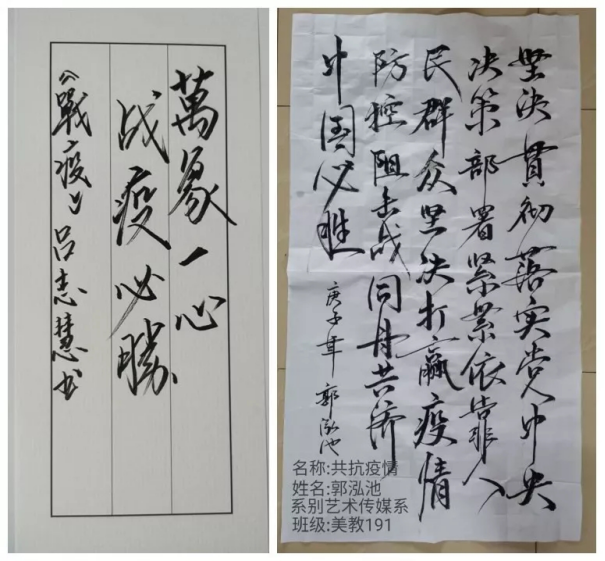 萬眾一心
战疫必勝
《戰疫》吕志慧书
坚决贯彻落实党中央
决策部署紧紧依靠人
民群众坚决打赢疫情
防控阻击战同舟共济
中国必胜
庚子年 郭泓池
名称:共抗疫情
姓名:郭泓池
系别艺术传媒系
班级:美教191